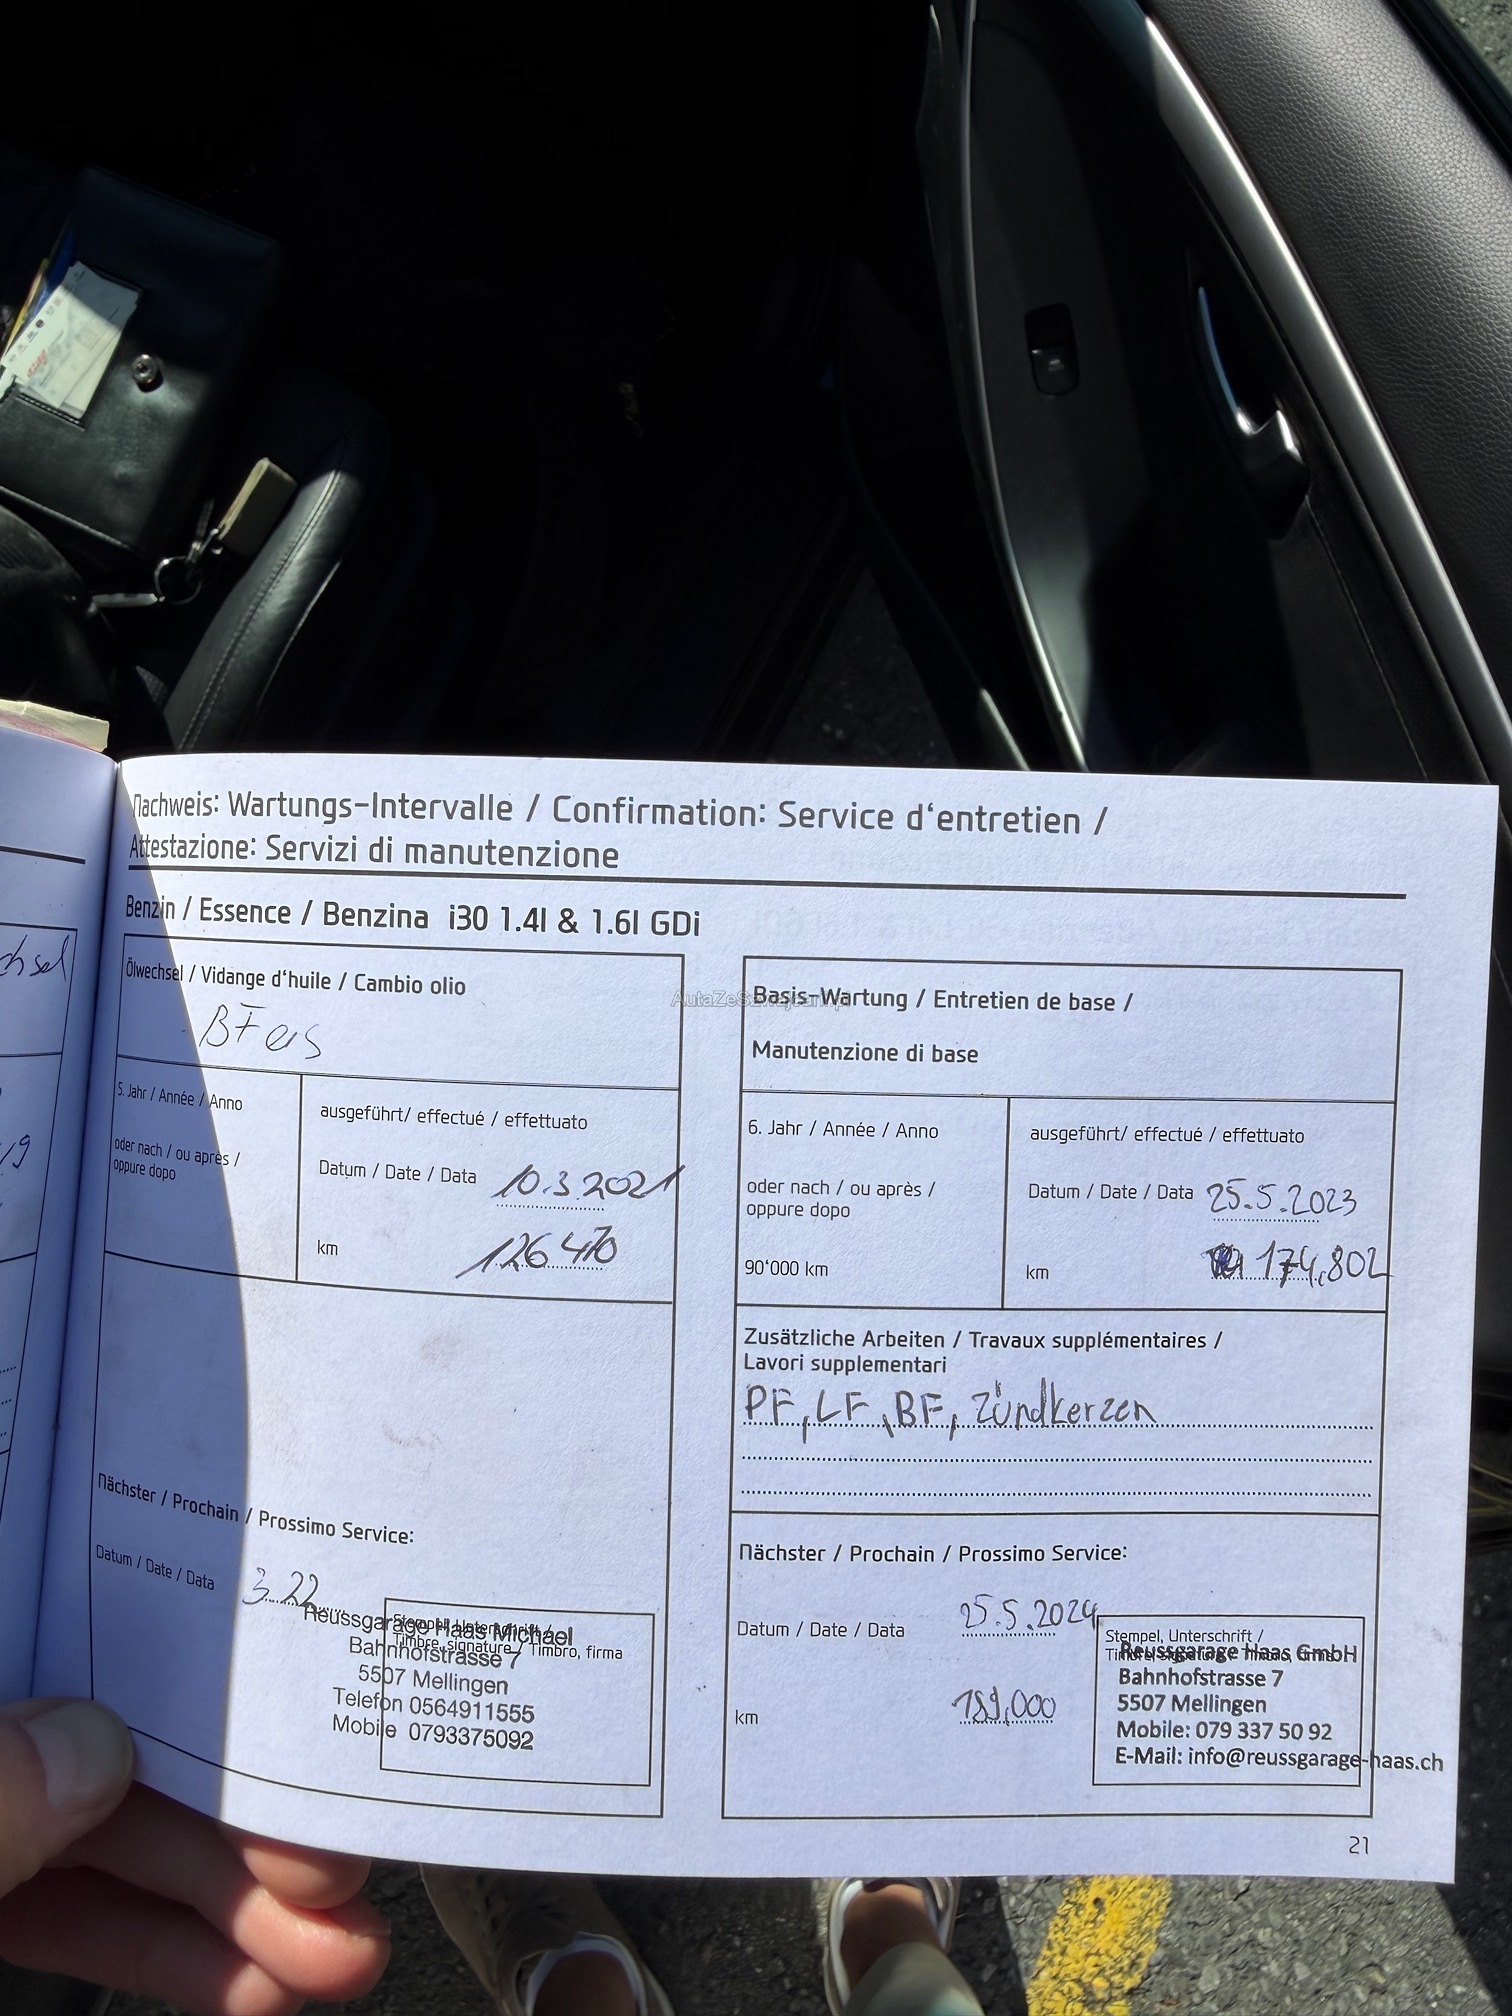 Nachweis: Wartungs-Intervalle / Confirmation: Service d'entretien /
Attestazione: Servizi di manutenzione
Benzin / Essence / Benzina i30 1.4l & 1.6l GDi
Ölwechsel / Vidange d'huile / Cambio olio
5. Jahr / Année / Anno
oder nach / ou après /
oppure dopo
ausgeführt/ effectué / effettuato
Datum / Date / Data 10.3.2021
km 126 470
Nächster / Prochain / Prossimo Service:
Datum / Date / Data 3.22
Stempel, Unterschrift /
Timbre, signature / Timbro, firma
Reussgarage Haas Michael
Bahnhofstrasse 7
5507 Mellingen
Telefon 0564911555
Mobile 0793375092
Basis-Wartung / Entretien de base /
Manutenzione di base
6. Jahr / Année / Anno
oder nach / ou après /
oppure dopo
90'000 km
ausgeführt/ effectué / effettuato
Datum / Date / Data 25.5.2023
km 174,802
Zusätzliche Arbeiten / Travaux supplémentaires /
Lavori supplementari
PF, LF, BF, Zündkerzen
Nächster / Prochain / Prossimo Service:
Datum / Date / Data 25.5.2024
km 189,000
Stempel, Unterschrift /
Reussgarage Haas GmbH
Bahnhofstrasse 7
5507 Mellingen
Mobile: 079 337 50 92
E-Mail: info@reussgarage-haas.ch
21
AutaZeSzwajcarii.pl